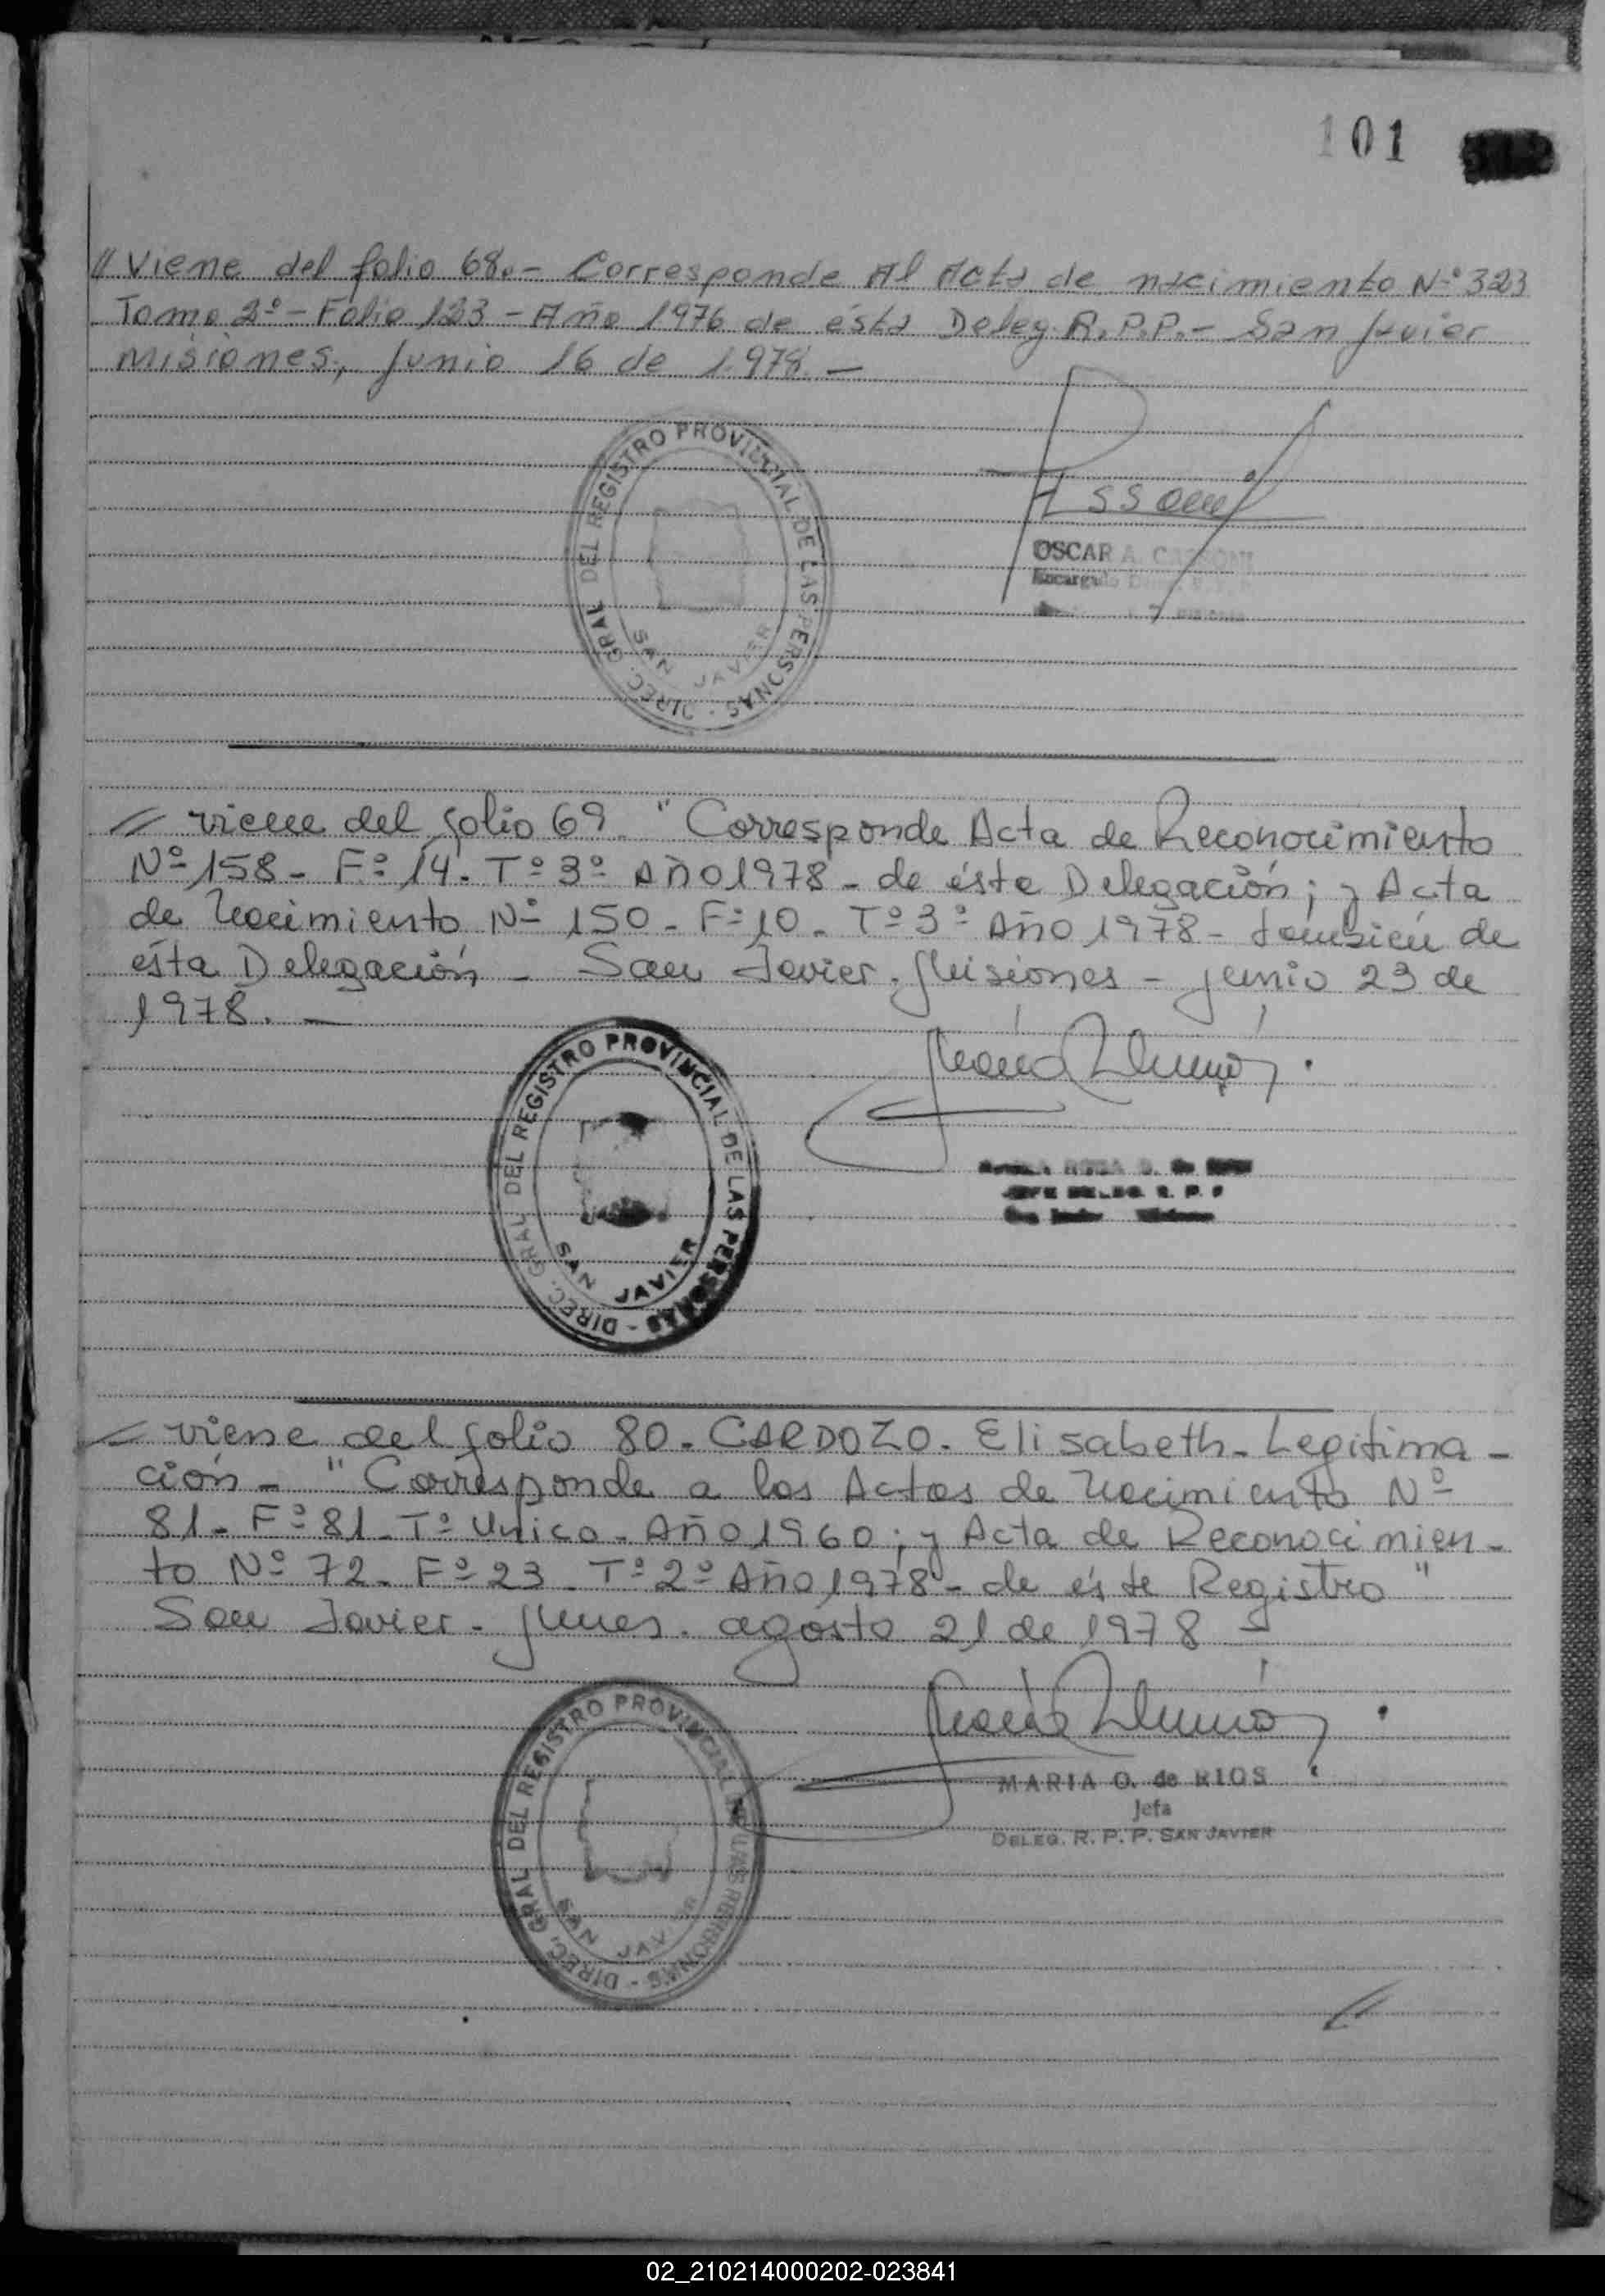 101
// Viene del folio 68.- Corresponde Al Acta de nacimiento Nº 323
Tomo 2º - Folio 123 - Año 1976 de ésta Deleg. R.P.P.- San Javier
Misiones, Junio 16 de 1.978.-
DIREC. GRAL DEL REGISTRO PROVINCIAL DE LAS PERSONAS
SAN JAVIER
OSCAR A.
// viene del folio 69. " Corresponde Acta de Reconocimiento
Nº 158 - Fº 14. Tº 3º Año 1978 - de ésta Delegación; y Acta
de Nacimiento Nº 150 - Fº 10 - Tº 3º Año 1978 - también de
ésta Delegación - San Javier. Misiones - junio 23 de
1978. -
DIREC. GRAL DEL REGISTRO PROVINCIAL DE LAS PERSONAS -
SAN JAVIER
// viene del folio 80. CARDOZO. Elisabeth - Legitima -
ción - " Corresponde a las Actas de Nacimiento Nº
81 - Fº 81 - Tº Unico - Año 1960; y Acta de Reconocimien -
to Nº 72 - Fº 23 - Tº 2º Año 1978 - de éste Registro "
San Javier - agosto 21 de 1978 -
DIREC. GRAL DEL REGISTRO PROVINCIAL DE LAS PERSONAS -
SAN JAVIER
MARIA O. de RIOS
Jefa
DELEG. R. P. P. SAN JAVIER
//
02_210214000202-023841